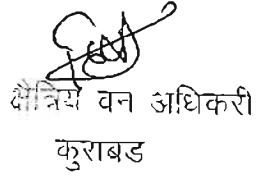 क्षेत्रिय वन अधिकरी
कुराबड